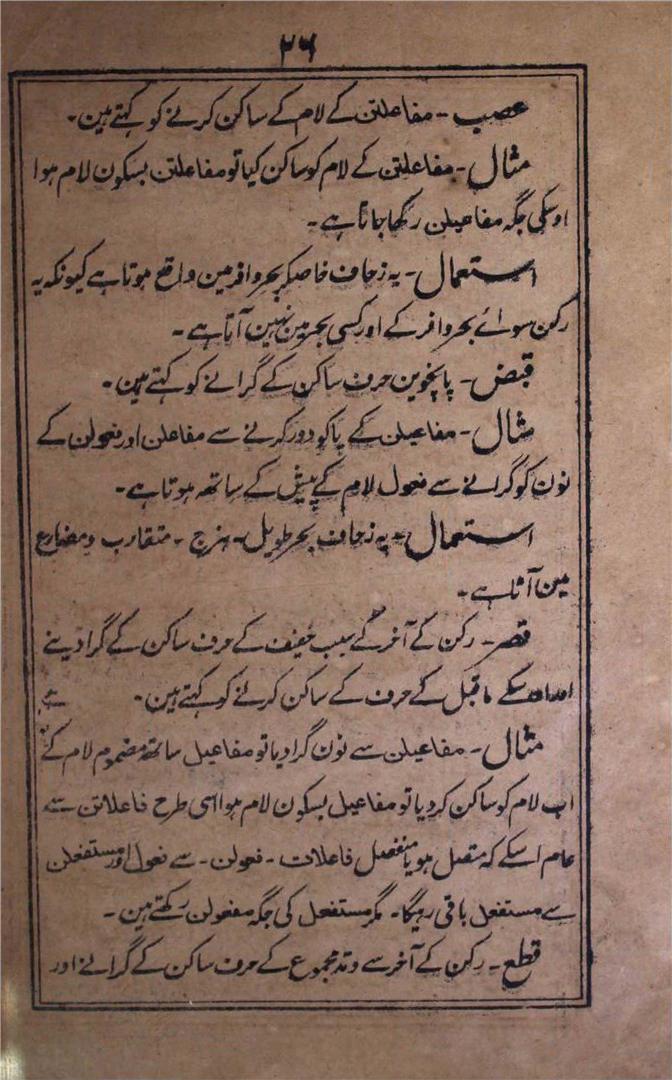 ۲۶
عصب۔ مفاعلتن کے لام کے ساکن کرنے کو کہتے ہین۔
مثال۔ مفاعلتن کے لام کو ساکن کیا تو مفاعلتن بسکون لام ہوا
اوسکی جگہ مفاعیلن رکھا جاتا ہے۔
استعمال۔ یہ زحاف خاصکر بحر وافر مین واقع ہوتا ہے کیونکہ یہ
رکن سوائے بحر وافر کے اور کسی بحر مین نہین آتا ہے۔
قبض۔ پانچوین حرف ساکن کے گرانے کو کہتے ہین۔
مثال۔ مفاعیلن کے یا کو دور کرنے سے مفاعلن اور فعولن کے
نون کو گرانے سے فعول لام کے پیش کے ساتھ ہوتا ہے۔
استعمال۔ یہ زحاف بحر طویل۔ ہزج۔ متقارب و مضارع
مین آتا ہے۔
قصر۔ رکن کے آخر کے سبب خفیف کے حرف ساکن کے گرا دینے
اور اوسکے ماقبل کے حرف کے ساکن کرنے کو کہتے ہین۔
مثال۔ مفاعیلن سے نون گرا دیا تو مفاعیل ساتھ مضموم لام کے
اب لام کو ساکن کر دیا تو مفاعیل بسکون لام ہوا اسی طرح فاعلاتن سے
عام اسکے کہ متصل ہو یا منفصل فاعلات۔ فعولن۔ سے فعول اور مستفعلن
سے مستفعل باقی رہیگا۔ مگر مستفعل کی جگہ مفعولن رکھتے ہین۔
قطع۔ رکن کے آخر سے وتد مجموع کے حرف ساکن کے گرانے اور